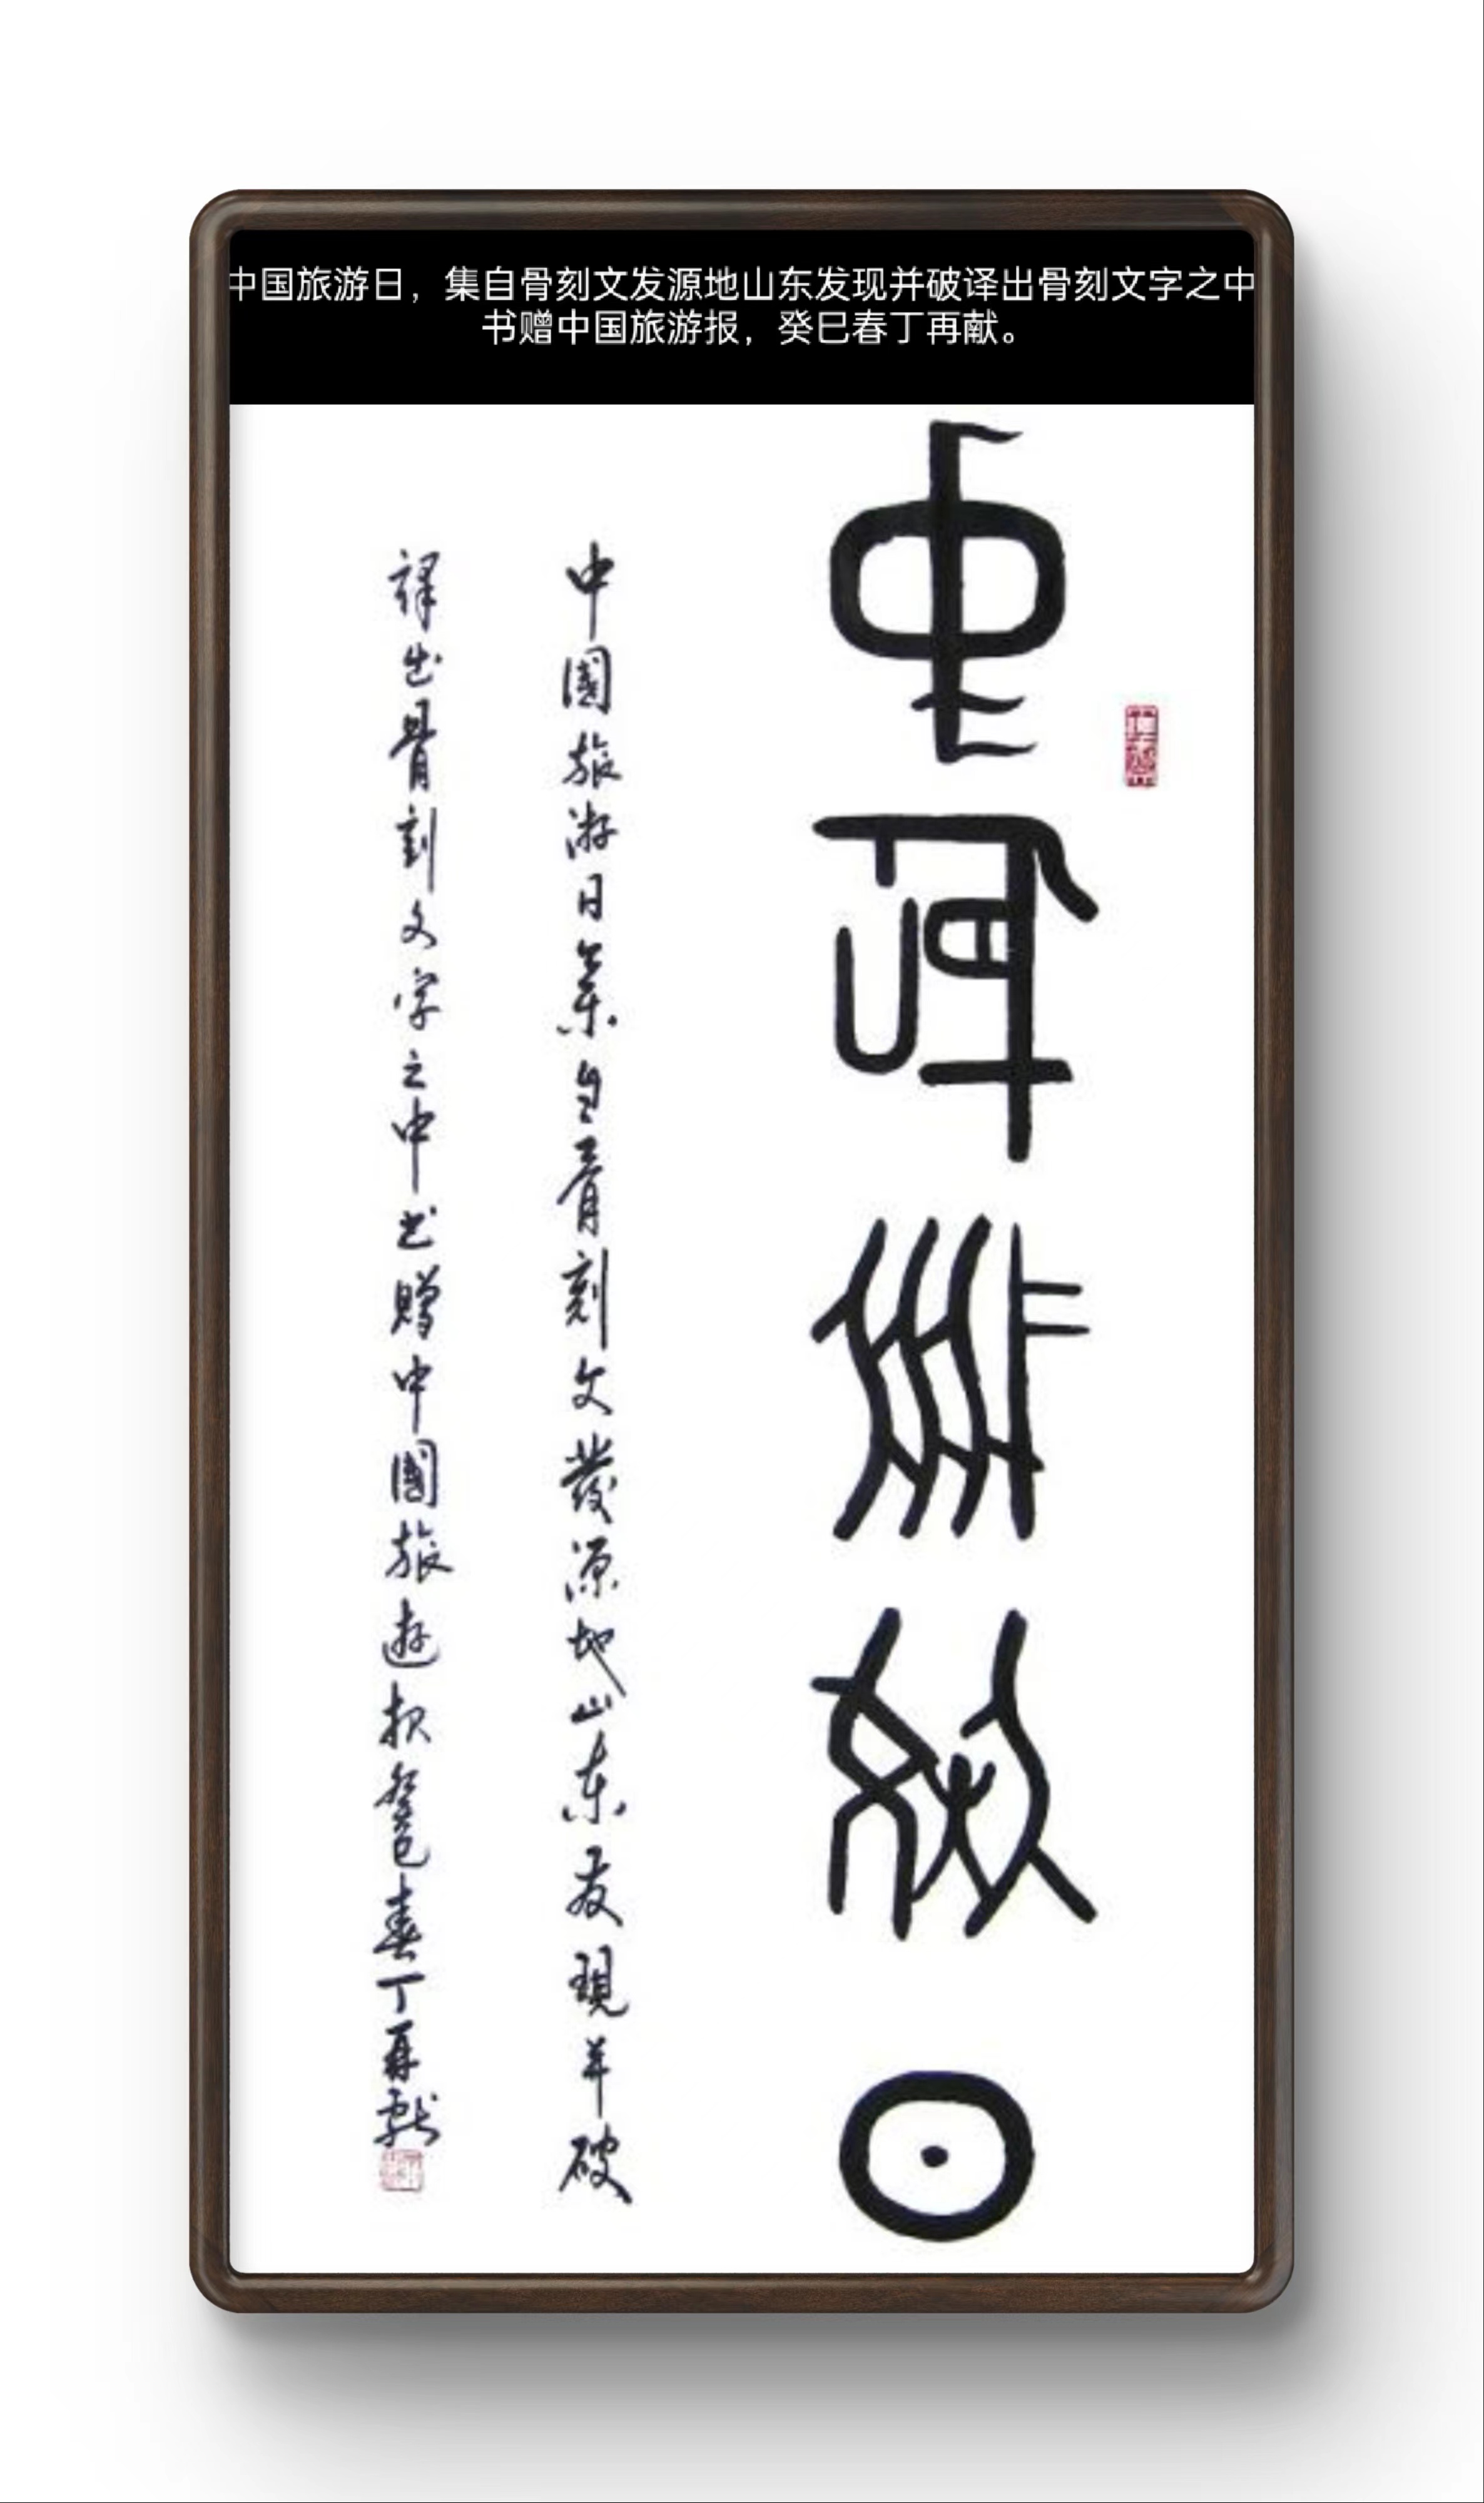 中国旅游日，集自骨刻文发源地山东发现并破译出骨刻文字之中
书赠中国旅游报，癸巳春丁再献。
中國旅游日
中國旅游日集自骨刻文發源地山东發現并破
譯出骨刻文字之中书赠中國旅遊报癸巳春丁再献